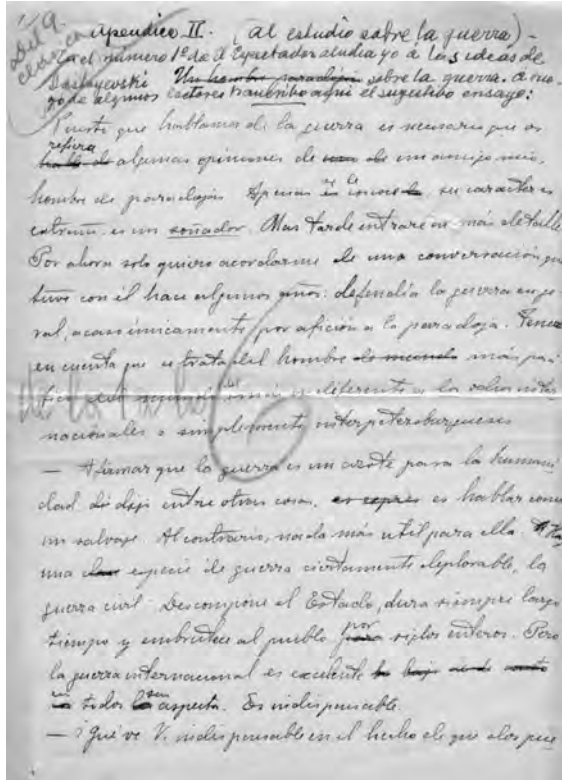 Apéndice II. (al estudio sobre la guerra) —
En el número 1º de El Espectador aludía yo á las ideas de
Dostoyevski Un hombre paradoja sobre la guerra. A rue-
go de algunos lectores transcribo aquí el sugestivo ensayo:
Puesto que hablamos de la guerra es necesario que os
refiera
algunas opiniones de un amigo mío,
hombre de paradojas. Apenas se le conoce, su carácter es
extraño: es un soñador. Mas tarde entraré en más detalles.
Por ahora solo quiero acordarme de una conversación que
tuve con él hace algunos años: defendía la guerra en ge-
ral, acaso únicamente por afición a la paradoja. Tened
en cuenta que se trata del hombre de mundo más pací-
fico del mundo más indiferente a los odios inter
nacionales o simplemente interpetersburgueses
— Afirmar que la guerra es un azote para la humani
dad dijo entre otras cosas, es hablar como
un salvaje. Al contrario, nada más util para ella. Hay
una especie de guerra ciertamente deplorable, la
guerra civil. Descompone el Estado, dura siempre largo
tiempo y embrutece al pueblo por siglos enteros. Pero
la guerra internacional es excelente
en todos sus aspectos. Es indispensable.
— ¿Qué ve V. indispensable en el hecho de que dos pue